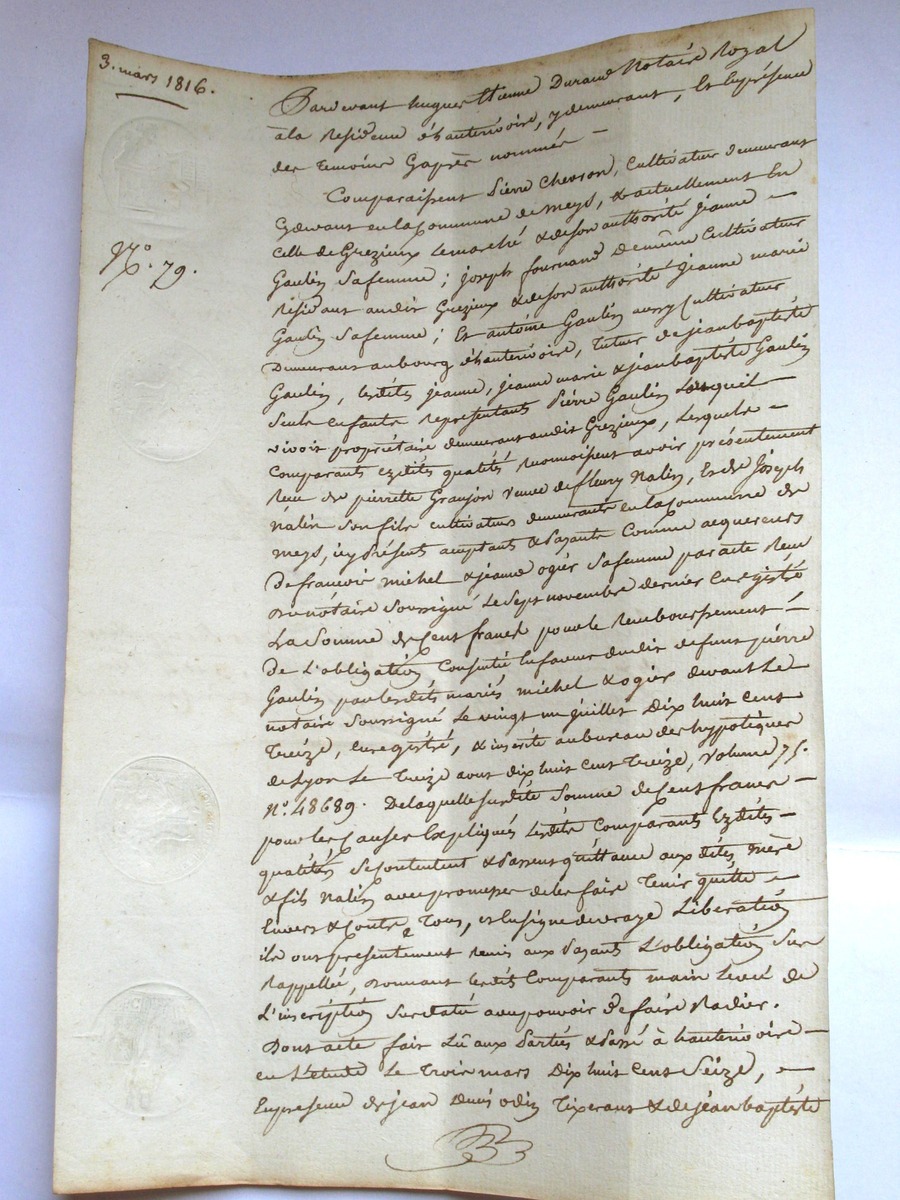 3. mars 1816.
Pardevant hugues Etienne Durand Notaire Royal
à la Residence d'hauterivoire, y demeurant, Et En présence
des temoins Cy après nommés —
Comparaissent Pierre Chevron, Cultivateur demeurant
Cydevant en la Commune de meys, & actuellement En
Celle de Grezieux Lemarché & de son authorité jeanne —
N.o 79.
Gaulin Sa femme; joseph fournand De même Cultivateur
Résidant audit Grezieux & de son authorité jeanne marie
Gaulin Sa femme; Et antoine Gaulin aussy Cultivateur
Demeurant au bourg d'hauterivoire, tuteur de jean baptiste
Gaulin, lesdits jeanne, jeanne marie & jean baptiste Gaulin
Seuls enfants Représentants Pierre Gaulin Lequel
vivoit propriétaire demeurant audit Grezieux, Lesquels —
Comparants ezdites qualités reconnoissent avoir présentement
Reçu de pierrette Granjon veuve de fleury Nalin, Et de joseph
Nalin Son fils cultivateurs demeurants en la Commune de
meys, icy présents acceptants & Payants Comme acquereurs
De francois michel & jeanne ogier Sa femme par acte Reçu
Du notaire Soussigné Le Sept novembre dernier Enregistré
La Somme de Cent francs pour le Remboursement —
De L'obligation Consentie En faveur dudit defunt pierre
Gaulin par lesdits mariés michel & ogier devant Le
notaire Soussigné Le vingt un juillet Dix huit cent
treize, Enregistré, & inscrite au bureau des hypotèques
de Lyon Le treize aout dix huit Cent treize, volume 75.
N.o 48689. De laquelle Susdite Somme de Cent francs —
pour les Causes Expliqués Lesdits Comparants Ezdites —
qualités Se Contentent & Passent quittance aux dits mère
& fils Nalin avec promesse de les faire tenir quitte —
Envers & Contre tous, et En Signe de vraye Liberation
ils ont présentement Remis aux Payants L'obligation Sus
Rappellée, Donnant lesdits Comparants main Levée de
L'inscription Susdatée avec pouvoir de faire Radier.
Dont acte fait Lû aux Parties & Passé à hauterivoire —
en L'etude Le trois mars Dix huit Cent Seize, —
En présence de jean Denis odin tixerant & de jean baptiste